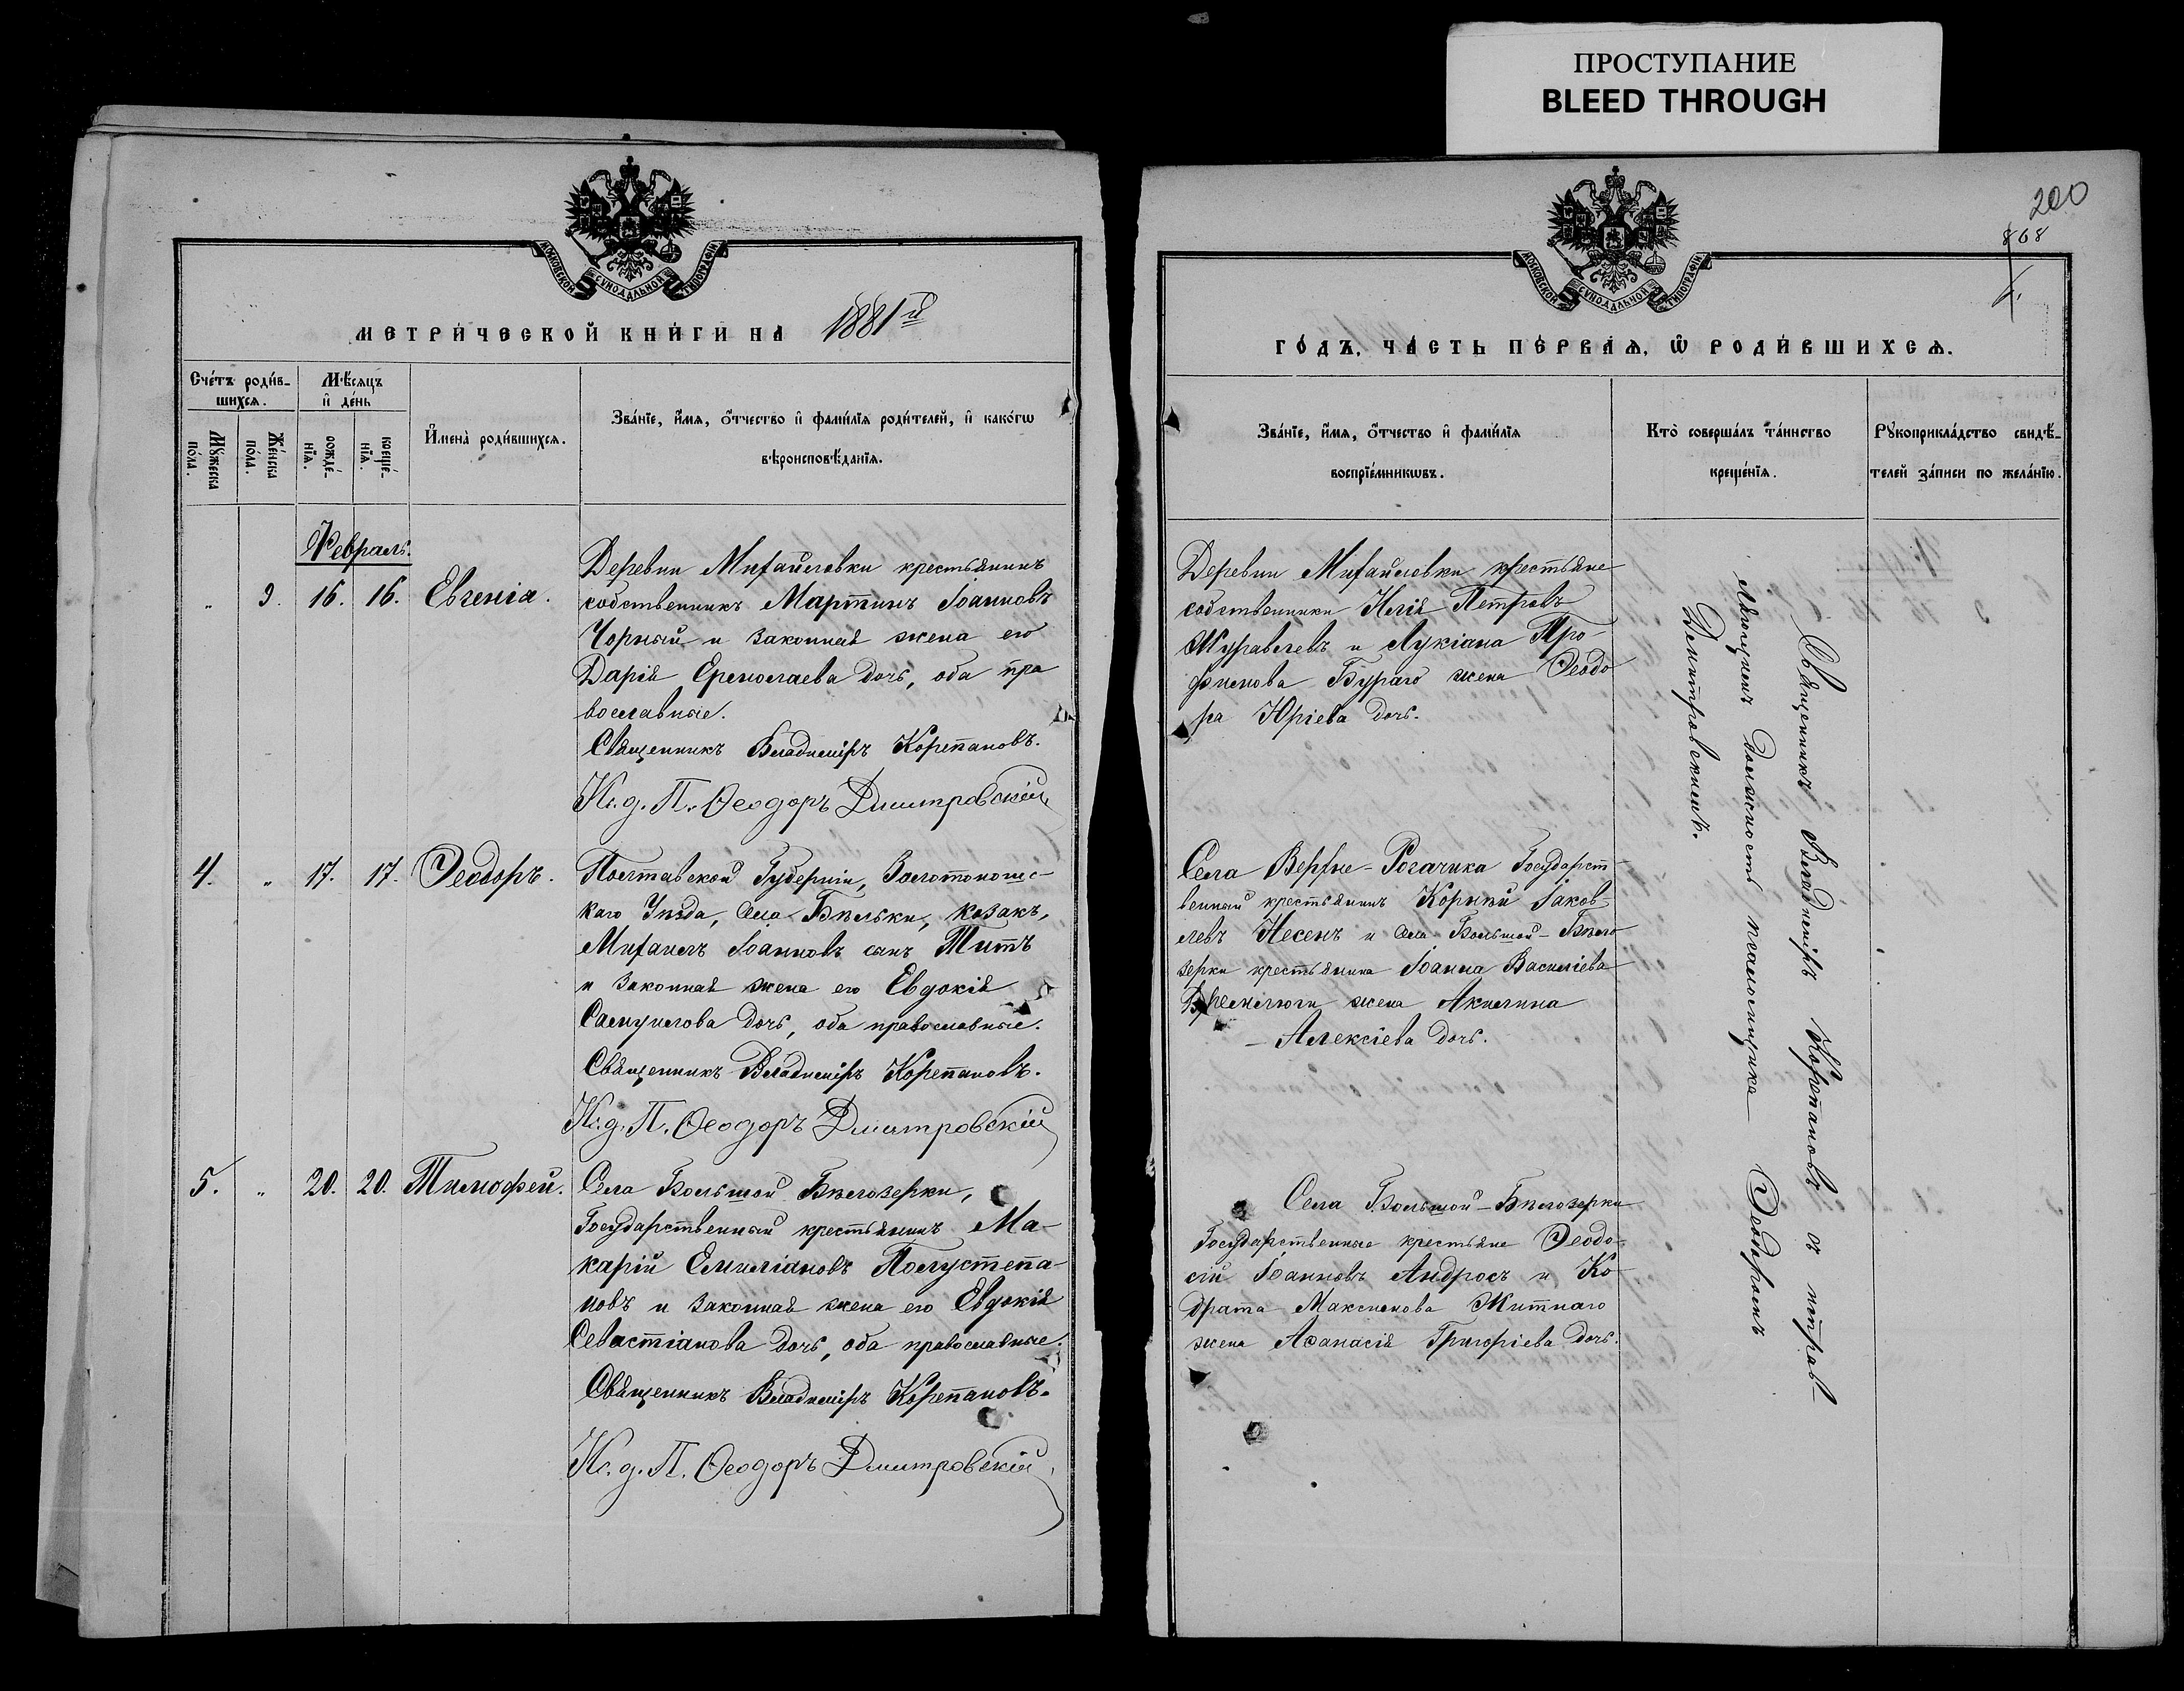 ПРОСТУПАНИЕ
BLEED THROUGH
МОСКОВСКОЙ СѴНОДАЛЬНОЙ ТИПОГРАФІИ
МЕТРИ́ЧЕСКОЙ КНИ́ГИ НА 1881й
Сче́тъ роди́в-
шихсѧ.
Мѣ́сѧцъ
и҆ де́нь
Мꙋ́жеска
по́ла.
Же́нска
по́ла.
рожде́-
нїѧ.
креще́-
нїѧ.
И҆мена̀ роди́вшихсѧ.
Зва́нїе, и҆́мѧ, ѻ҆́тчество и҆ фами́лїѧ роди́телей, и҆ како́гѡ
вѣроисповѣ́данїѧ.
Февраль.
" 9. 16. 16. Евгенія.
Деревни Михайловки крестьянинъ
собственникъ Мартинъ Іоанновъ
Чорный и законная жена его
Дарія Ермолаева дочь, оба пра
вославные.
Священникъ Владиміръ Корепановъ.
И. д. П. Ѳеодоръ Дмитровскій
4. " 17. 17. Ѳеодоръ.
Полтавской Губерніи, Золотоношс-
каго Уѣзда, села Бѣльки, козакъ,
Михаилъ Іоанновъ сынъ Титъ
и законная жена его Евдокія
Самуилова дочь, оба православные.
Священникъ Владиміръ Корепановъ.
И. д. П. Ѳеодоръ Дмитровскій
5. " 20. 20. Тимофей.
Села Большой Бѣлозерки,
Государственный крестьянинъ Ма-
карій Емиліановъ Полустепа-
новъ и законная жена его Евдокія
Севастіанова дочь, оба православные.
Священникъ Владиміръ Корепановъ.
И. д. П. Ѳеодоръ Дмитровскій
200
868
МОСКОВСКОЙ СѴНОДАЛЬНОЙ ТИПОГРАФІИ
ГО́ДЪ, ЧА́СТЬ ПЕ́РВАѦ, Ѡ҆ РОДИ́ВШИХСѦ.
Зва́нїе, и҆́мѧ, ѻ҆́тчество и҆ фами́лїѧ
воспрїе́мникѡвъ.
Кто̀ соверша́лъ та́инство
креще́нїѧ.
Рꙋкоприкла́дство свидѣ́-
телей за́писи по жела́нїю.
Деревни Михайловки крестьяне
собственники Илія Петровъ
Журавлевъ и Лукіана Тро-
фимова Бураго жена Ѳеодо
ра Юріева дочь.
Села Верхне-Рогачика Государст-
венный крестьянинъ Корній Іаков-
левъ Несенъ и села Большой-Бѣло
зерки крестьянина Іоанна Василіева
жена Акилина
Алексіева дочь.
Села Большой-Бѣлозерки
Государственные крестьяне Ѳеодо-
сій Іоанновъ Андросъ и Ко-
драта Максимова Житнаго
жена Аѳанасія Григоріева дочь.
Священникъ Владиміръ Корепановъ съ исправ-
ляющимъ должность псаломщика Ѳеодоромъ
Демитровскимъ.